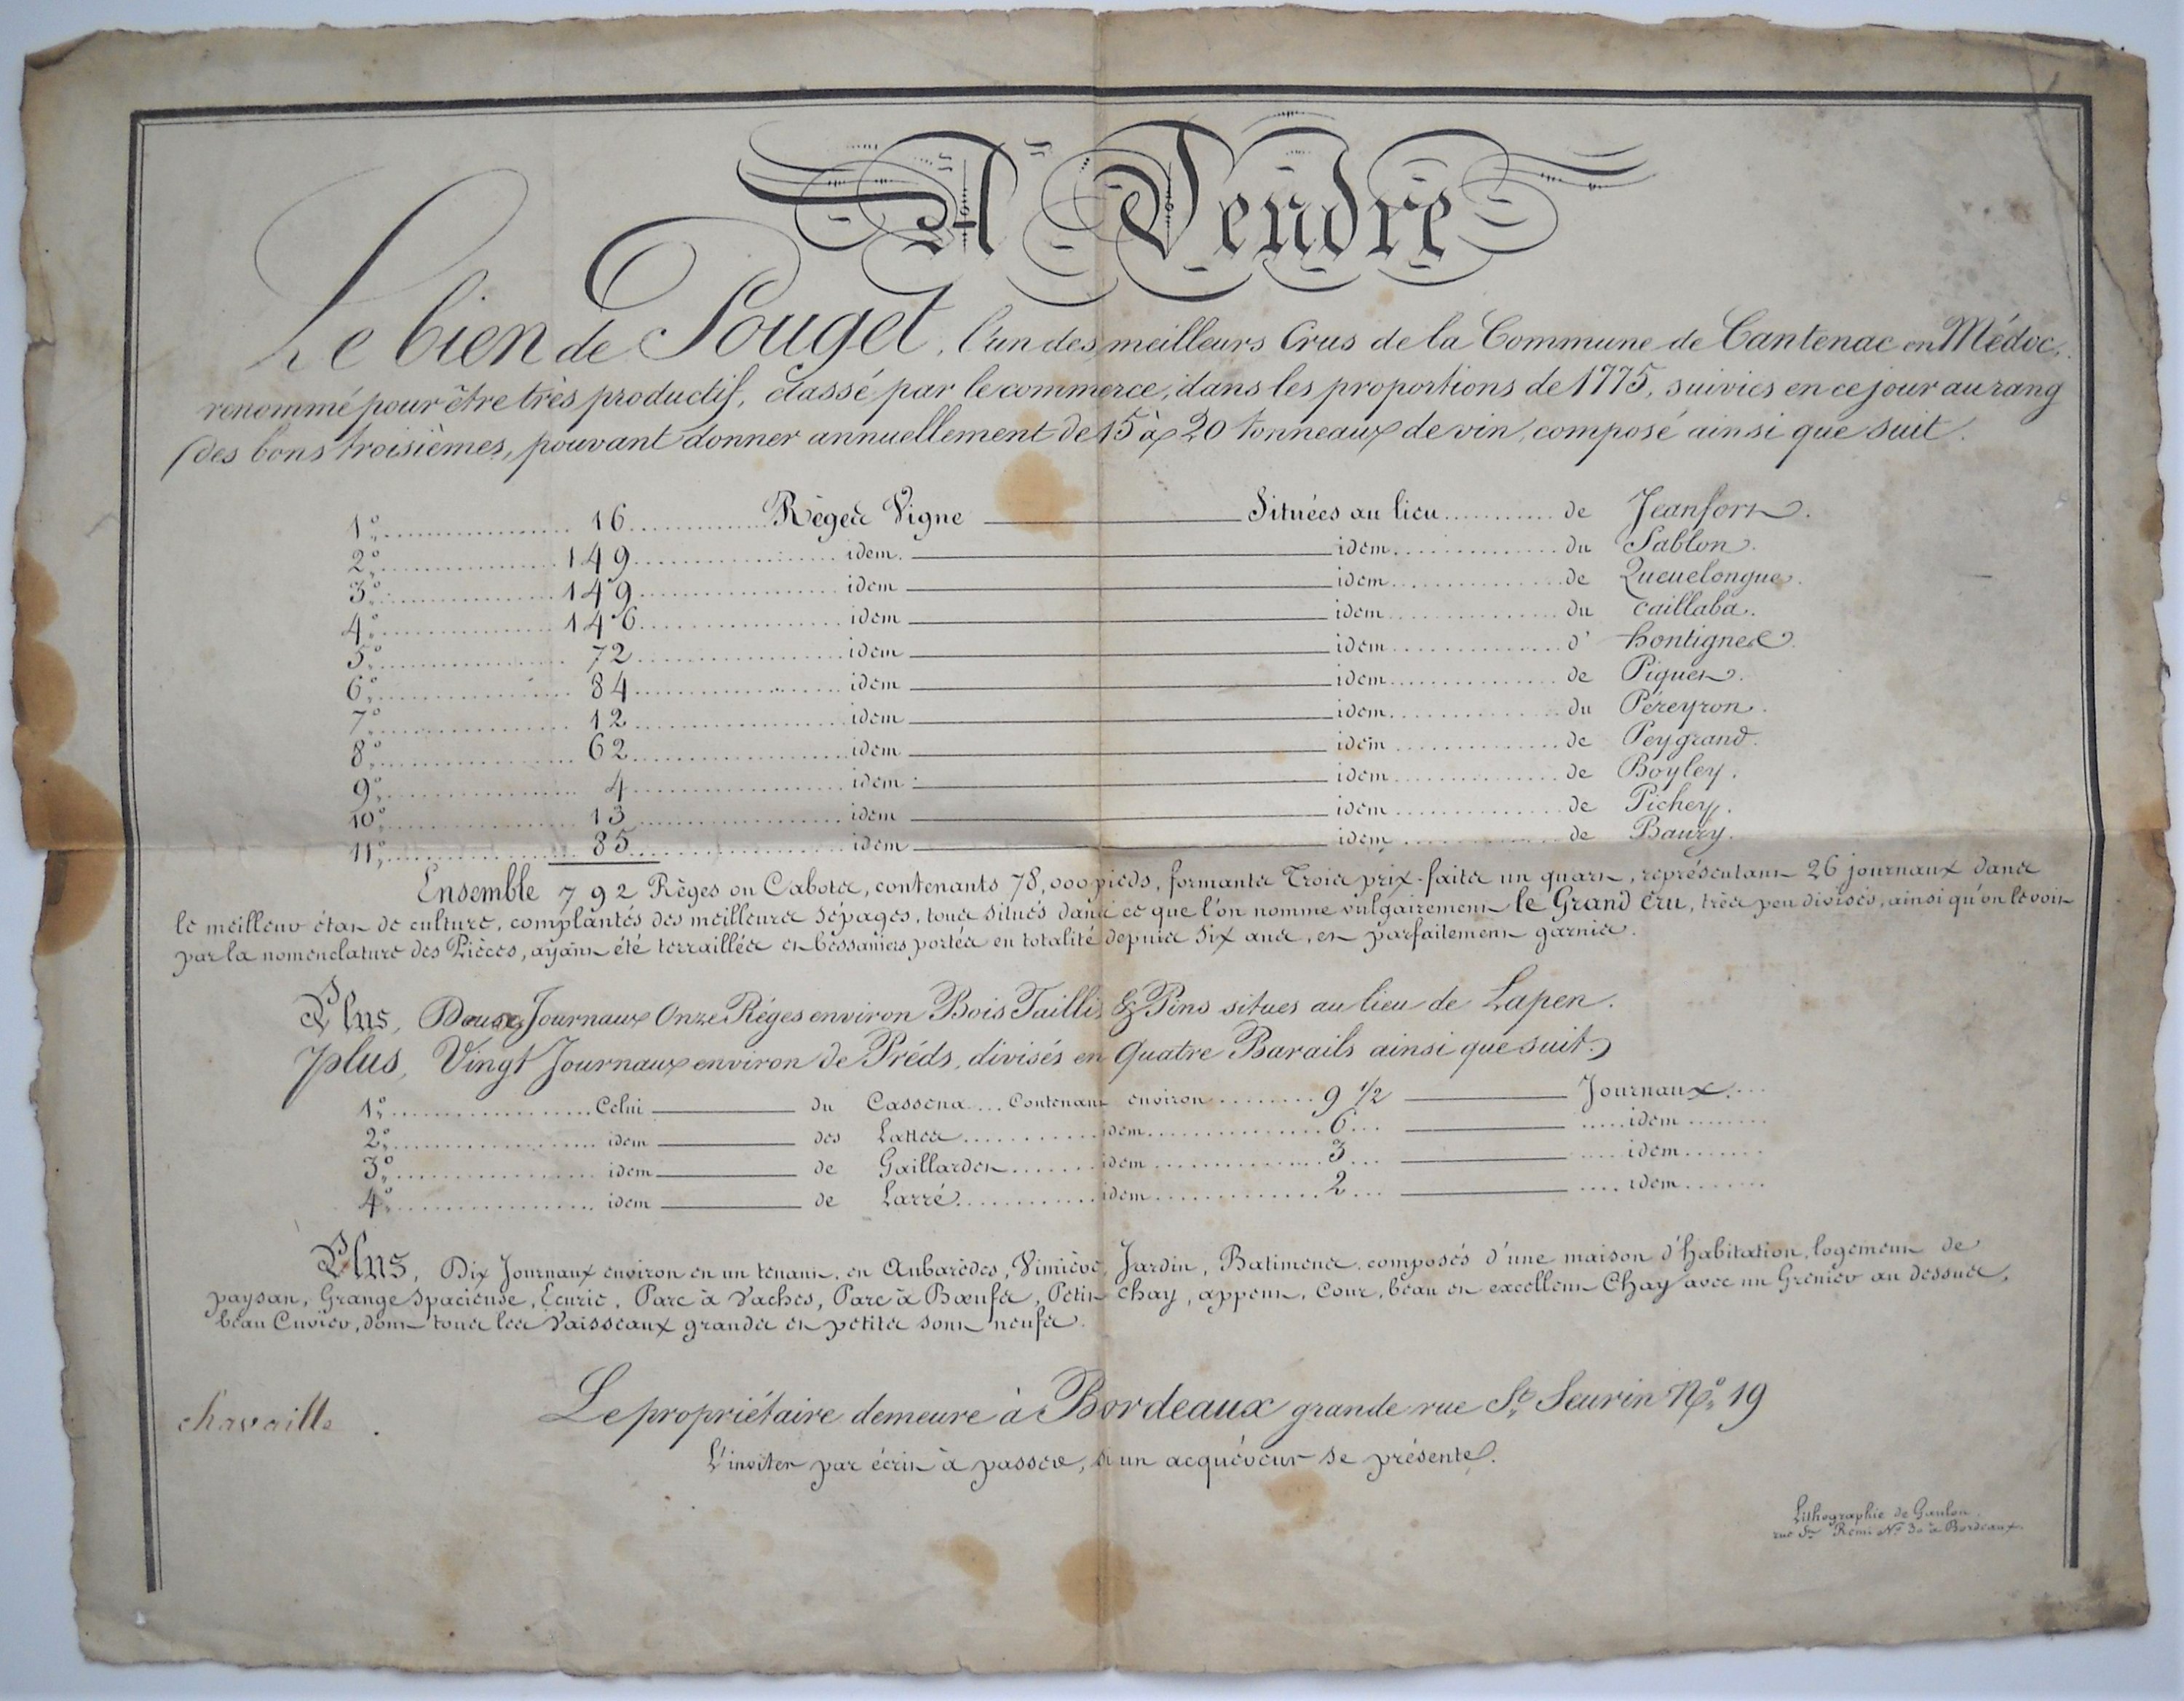 A Vendre
Le bien de Pouget, l'un des meilleurs Crus de la Commune de Cantenac en Médoc,
renommé pour être très productif, classé par le commerce, dans les proportions de 1775, suivies en ce jour au rang
des bons troisièmes, pouvant donner annuellement de 15 à 20 tonneaux de vin, composé ainsi que suit.
1° 16 Règes Vigne Situées au lieu de Jeanfort.
2° 149 idem. idem du Sablon.
3° 149 idem idem de Queuelongue.
4° 146 idem idem du Caillaba.
5° 72 idem idem d' hontignes.
6° 84 idem idem de Piquet.
7° 12 idem idem du Péreyron.
8° 62 idem idem de Peygrand.
9° 4 idem idem de Boyley.
10° 13 idem idem de Pichey.
11° 85 idem idem de Baury.
Ensemble 792 Règes ou Cabotes, contenants 78,000 pieds, formants Trois prix-faits un quart, représentant 26 journaux dans
le meilleur état de culture, complantés des meilleures sépages, tous situés dans ce que l'on nomme vulgairement le Grand Cru, très peu divisés, ainsi qu'on le voit
par la nomenclature des Pièces, ayant été terraillées et portés en totalité depuis six ans, et parfaitement garnies.
Plus, Journaux Onze Règes environ Bois Taillis & Pins situes au lieu de Lapen.
plus, Vingt Journaux environ de Préds, divisés en Quatre Barails ainsi que suit.
1° Celui du Cassena Contenant environ 9 1/2 Journaux.
2° idem des Lattes idem 6 idem
3° idem de Gaillardet idem 3 idem
4° idem de Larré idem 2 idem
Plus, Dix Journaux environ en un tenant, en Aubarèdes, Vimière, Jardin, Batiments composés d'une maison d'habitation, logement de
paysan, Grange spacieuse, Écurie, Parc à Vaches, Parc à Bœufs, Petit Chay, appent, Cour, beau et excellent Chay avec un Grenier au dessus,
beau Cuvier, dont tous les Vaisseaux grands et petits sont neufs.
Le propriétaire demeure à Bordeaux grande rue St. Seurin N° 19
chavaille.
L'inviter par écrit à passer, si un acquéreur se présente.
Lithographie de Gaulon,
rue St. Remi N° 30 à Bordeaux.